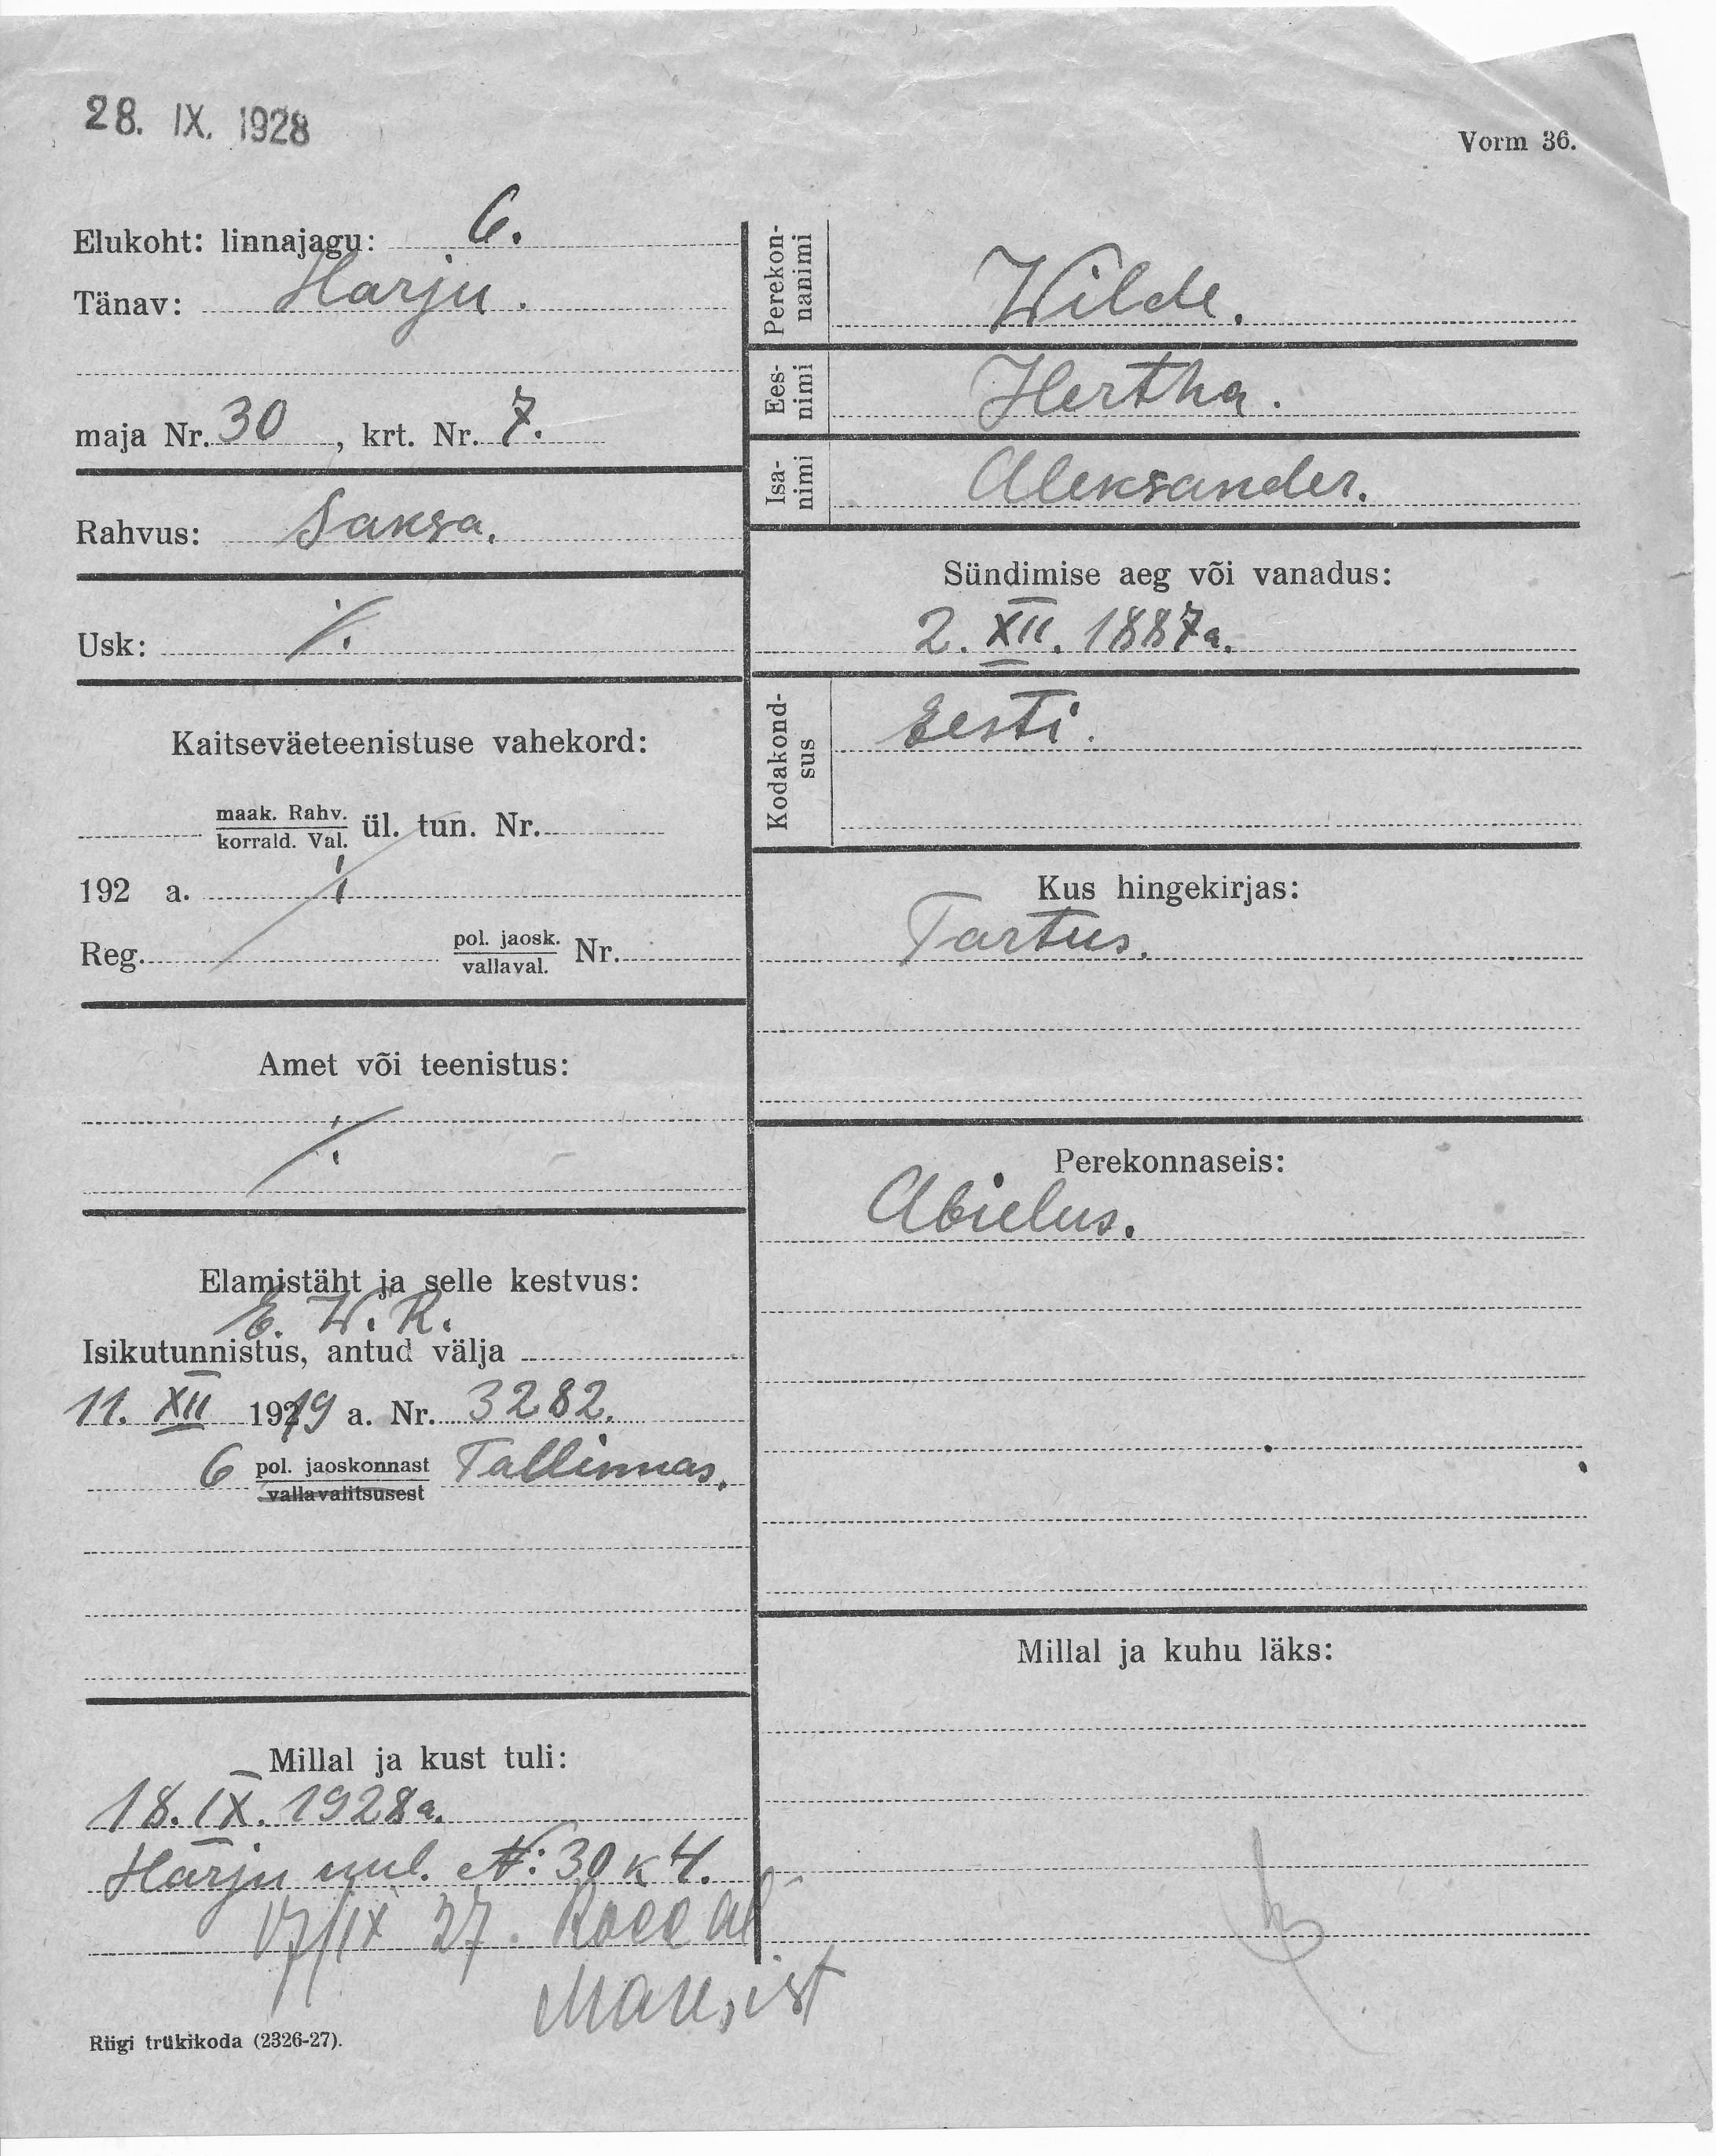 28. IX. 1928
Vorm 36.
Elukoht: linnajagu: 6.
Tänav: Harju.
maja Nr. 30, krt. Nr. 7.
Rahvus: Saksa.
Usk: ·/.
Kaitseväeteenistuse vahekord:
maak. Rahv.
korrald. Val. ül. tun. Nr.
192 a.
Reg. pol. jaosk.
vallaval. Nr.
Amet või teenistus:
·/.
Elamistäht ja selle kestvus:
E. W. R.
Isikutunnistus, antud välja
11. XII 1919 a. Nr. 3282.
6 pol. jaoskonnast Tallinnas.
vallavalitsusest
Millal ja kust tuli:
18. IX. 1928 a.
Harju uul. №: 30 k 4.
17/IX 27.
Riigi trükikoda (2326-27).
Perekon-
nanimi
Wilde.
Ees-
nimi
Hertha.
Isa-
nimi
Aleksander.
Sündimise aeg või vanadus:
2. XII. 1887 a.
Kodakond-
sus
Eesti.
Kus hingekirjas:
Tartus.
Perekonnaseis:
Abielus.
Millal ja kuhu läks: